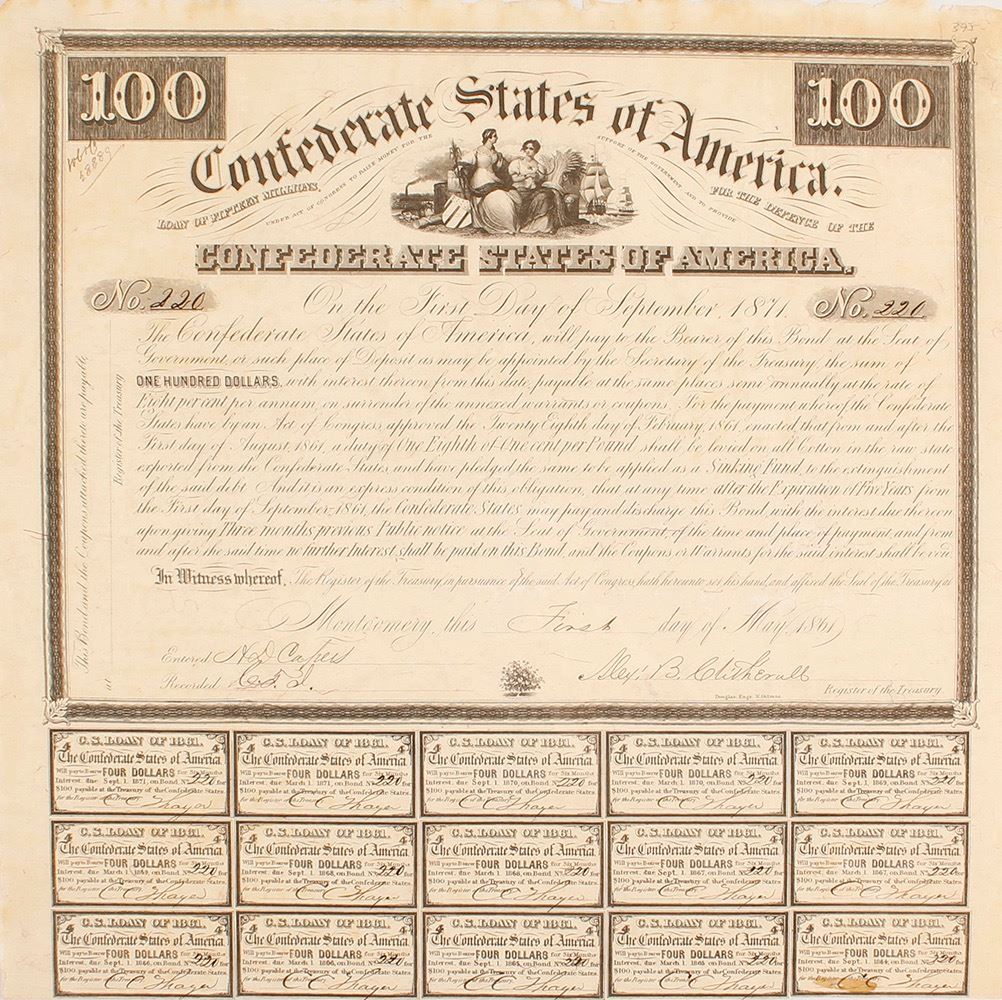 395
100
100
Confederate States of America.
LOAN OF FIFTEEN MILLIONS,
UNDER ACT OF CONGRESS TO RAISE MONEY FOR THE SUPPORT OF THE GOVERNMENT AND TO PROVIDE
FOR THE DEFENCE OF THE
CONFEDERATE STATES OF AMERICA.
No. 220
No. 220
On the First Day of September, 1871.
The Confederate States of America, will pay to the Bearer of this Bond at the Seat of
Government, or such place of Deposit as may be appointed by the Secretary of the Treasury, the sum of
ONE HUNDRED DOLLARS, with interest thereon from this date, payable at the same places semi annually at the rate of
Eight per cent per annum, on surrender of the annexed warrants or coupons. For the payment whereof the Confederate
States have by an Act of Congress approved the Twenty Eighth day of February 1861, enacted, that from and after the
First day of August, 1861, a duty of One Eighth of One cent per Pound shall be levied on all Cotton in the raw state
exported from the Confederate States, and have pledged the same to be applied as a Sinking Fund, to the extinguishment
of the said debt. And it is an express condition of this obligation, that at any time after the Expiration of Five Years from
the First day of September, 1861, the Confederate States may pay and discharge this Bond, with the interest due thereon
upon giving Three months previous Public notice at the Seat of Government, of the time and place of payment, and from
and after the said time no further Interest shall be paid on this Bond, and the Coupons or Warrants for the said interest shall be void.
In Witness whereof, The Register of the Treasury, in pursuance of the said Act of Congress, hath hereunto set his hand, and affixed the Seal of the Treasury at
Montgomery, this First day of May, 1861
Entered H D Capers
Recorded
Alex. B. Clitherall
Register of the Treasury
Douglas. Engr. N. Orleans
This Bond and the Coupons attached thereto are payable
at
Register of the Treasury
4 C. S. LOAN OF 1861. 4
The Confederate States of America
Will pay to Bearer FOUR DOLLARS for Six Months
Interest, due Sept. 1 1871, on Bond No. 220 for
$100 payable at the Treasury of the Confederate States.
for the Register of the Treasury C C Thayer
4 C. S. LOAN OF 1861. 4
The Confederate States of America
Will pay to Bearer FOUR DOLLARS for Six Months
Interest, due March 1 1871, on Bond No. 220 for
$100 payable at the Treasury of the Confederate States.
for the Register of the Treasury C C Thayer
4 C. S. LOAN OF 1861. 4
The Confederate States of America
Will pay to Bearer FOUR DOLLARS for Six Months
Interest, due Sept. 1 1870, on Bond No. 220 for
$100 payable at the Treasury of the Confederate States.
for the Register of the Treasury C C Thayer
4 C. S. LOAN OF 1861. 4
The Confederate States of America
Will pay to Bearer FOUR DOLLARS for Six Months
Interest, due March 1 1870, on Bond No. 220 for
$100 payable at the Treasury of the Confederate States.
for the Register of the Treasury C C Thayer
4 C. S. LOAN OF 1861. 4
The Confederate States of America
Will pay to Bearer FOUR DOLLARS for Six Months
Interest, due Sept. 1 1869, on Bond No. 220 for
$100 payable at the Treasury of the Confederate States.
for the Register of the Treasury C C Thayer
4 C. S. LOAN OF 1861. 4
The Confederate States of America
Will pay to Bearer FOUR DOLLARS for Six Months
Interest, due March 1 1869, on Bond No. 220 for
$100 payable at the Treasury of the Confederate States.
for the Register of the Treasury C C Thayer
4 C. S. LOAN OF 1861. 4
The Confederate States of America
Will pay to Bearer FOUR DOLLARS for Six Months
Interest, due Sept. 1 1868, on Bond No. 220 for
$100 payable at the Treasury of the Confederate States.
for the Register of the Treasury C C Thayer
4 C. S. LOAN OF 1861. 4
The Confederate States of America
Will pay to Bearer FOUR DOLLARS for Six Months
Interest, due March 1 1868, on Bond No. 220 for
$100 payable at the Treasury of the Confederate States.
for the Register of the Treasury C C Thayer
4 C. S. LOAN OF 1861. 4
The Confederate States of America
Will pay to Bearer FOUR DOLLARS for Six Months
Interest, due Sept 1 1867, on Bond No. 220 for
$100 payable at the Treasury of the Confederate States.
for the Register of the Treasury C C Thayer
4 C. S. LOAN OF 1861. 4
The Confederate States of America
Will pay to Bearer FOUR DOLLARS for Six Months
Interest, due March 1 1867, on Bond No. 220 for
$100 payable at the Treasury of the Confederate States.
for the Register of the Treasury C C Thayer
4 C. S. LOAN OF 1861. 4
The Confederate States of America
Will pay to Bearer FOUR DOLLARS for Six Months
Interest, due Sept. 1 1866, on Bond No. 220 for
$100 payable at the Treasury of the Confederate States.
C C Thayer
4 C. S. LOAN OF 1861. 4
The Confederate States of America
Will pay to Bearer FOUR DOLLARS for Six Months
Interest, due March 1 1866, on Bond No. 220 for
$100 payable at the Treasury of the Confederate States.
C C Thayer
4 C. S. LOAN OF 1861. 4
The Confederate States of America
Will pay to Bearer FOUR DOLLARS for Six Months
Interest, due Sept. 1 1865, on Bond No. 220 for
$100 payable at the Treasury of the Confederate States.
C C Thayer
4 C. S. LOAN OF 1861. 4
The Confederate States of America
Will pay to Bearer FOUR DOLLARS for Six Months
Interest, due March 1 1865, on Bond No. 220 for
$100 payable at the Treasury of the Confederate States.
C C Thayer
4 C. S. LOAN OF 1861. 4
The Confederate States of America
Will pay to Bearer FOUR DOLLARS for Six Months
Interest, due Sept. 1 1864, on Bond No. 220 for
$100 payable at the Treasury of the Confederate States.
C C Thayer